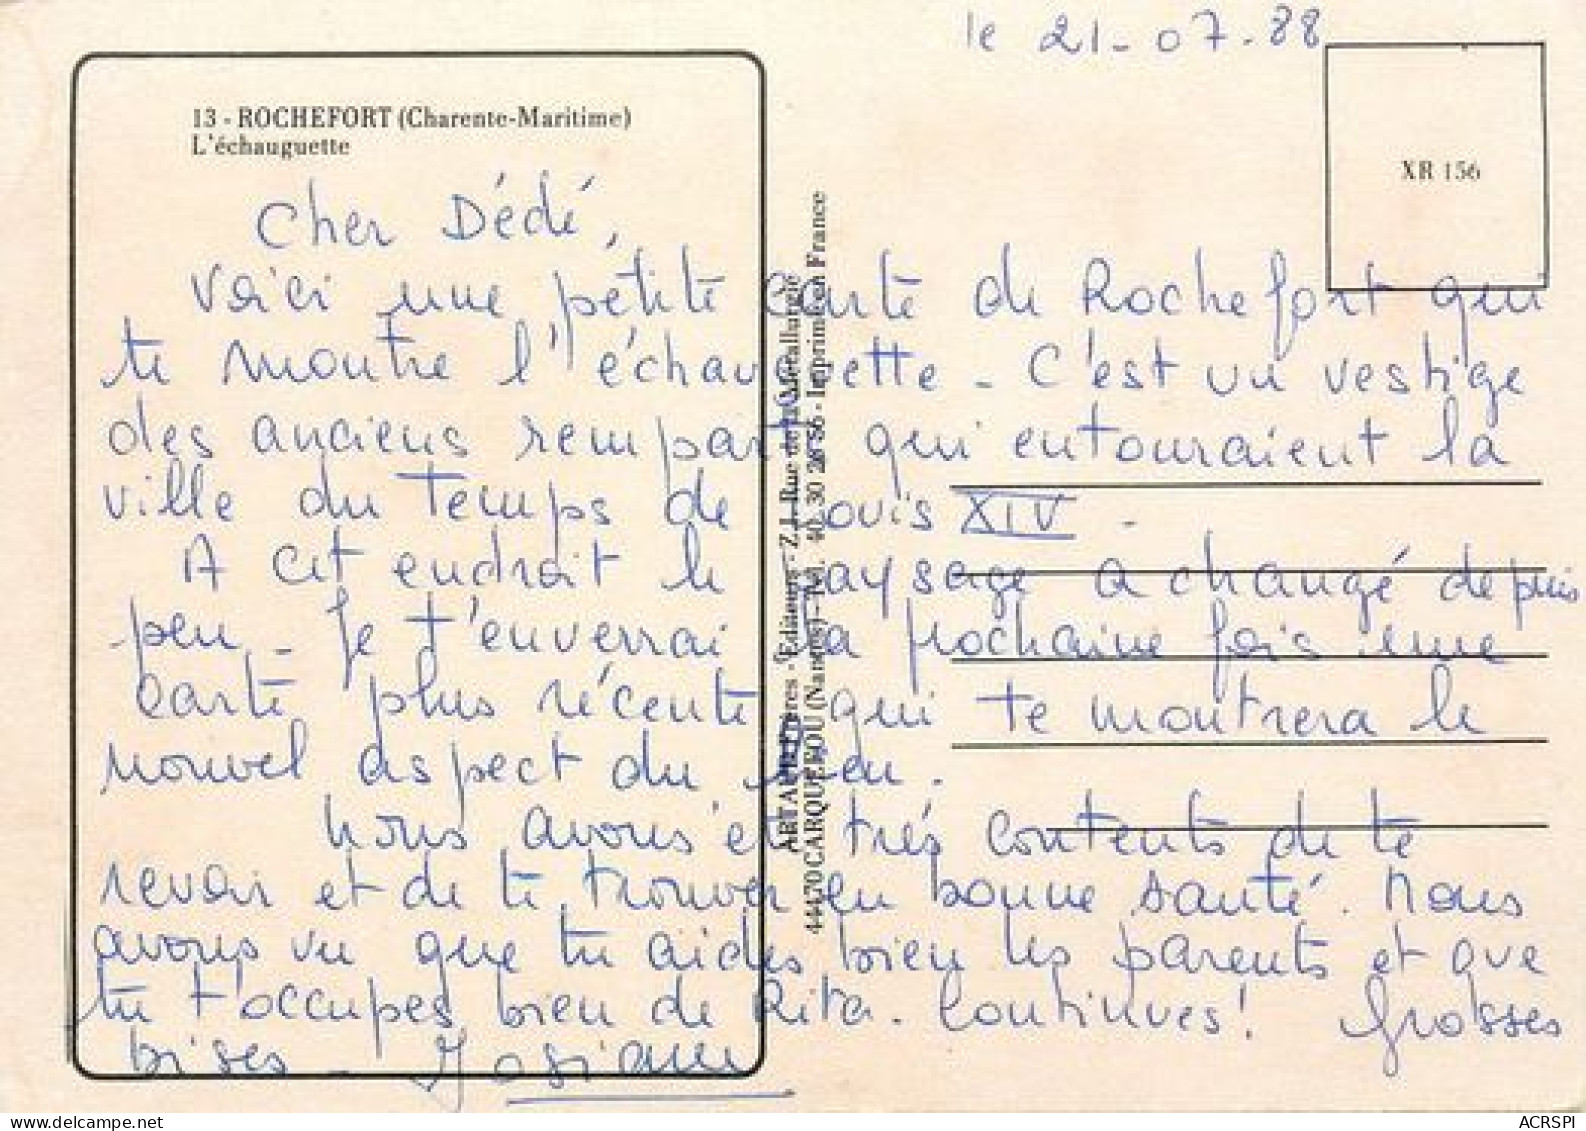 le 21-07-88
13 - ROCHEFORT (Charente-Maritime)
L'échauguette
XR 156
Cher Dédé,
Voici une petite carte de Rochefort qui
te montre l'échauguette - C'est un vestige
des anciens remparts qui entouraient la
ville du temps de Louis XIV -
A cet endroit le paysage a changé depuis
peu - Je t'enverrai la prochaine fois une
carte plus récente qui te montrera le
nouvel aspect du lieu.
Nous avons été très contents de te
revoir et de te trouver en bonne santé. Nous
avons vu que tu aides bien tes parents et que
tu t'occupes bien de Rita. Continues! Grosses
bises - Josiane
ARTAUD Frères - Editeurs - Z.I. Rue de la Métallurgie
44470 CARQUEFOU (Nantes) - Tél. 40 30 28 56 - Imprimé en France
ACRSPI